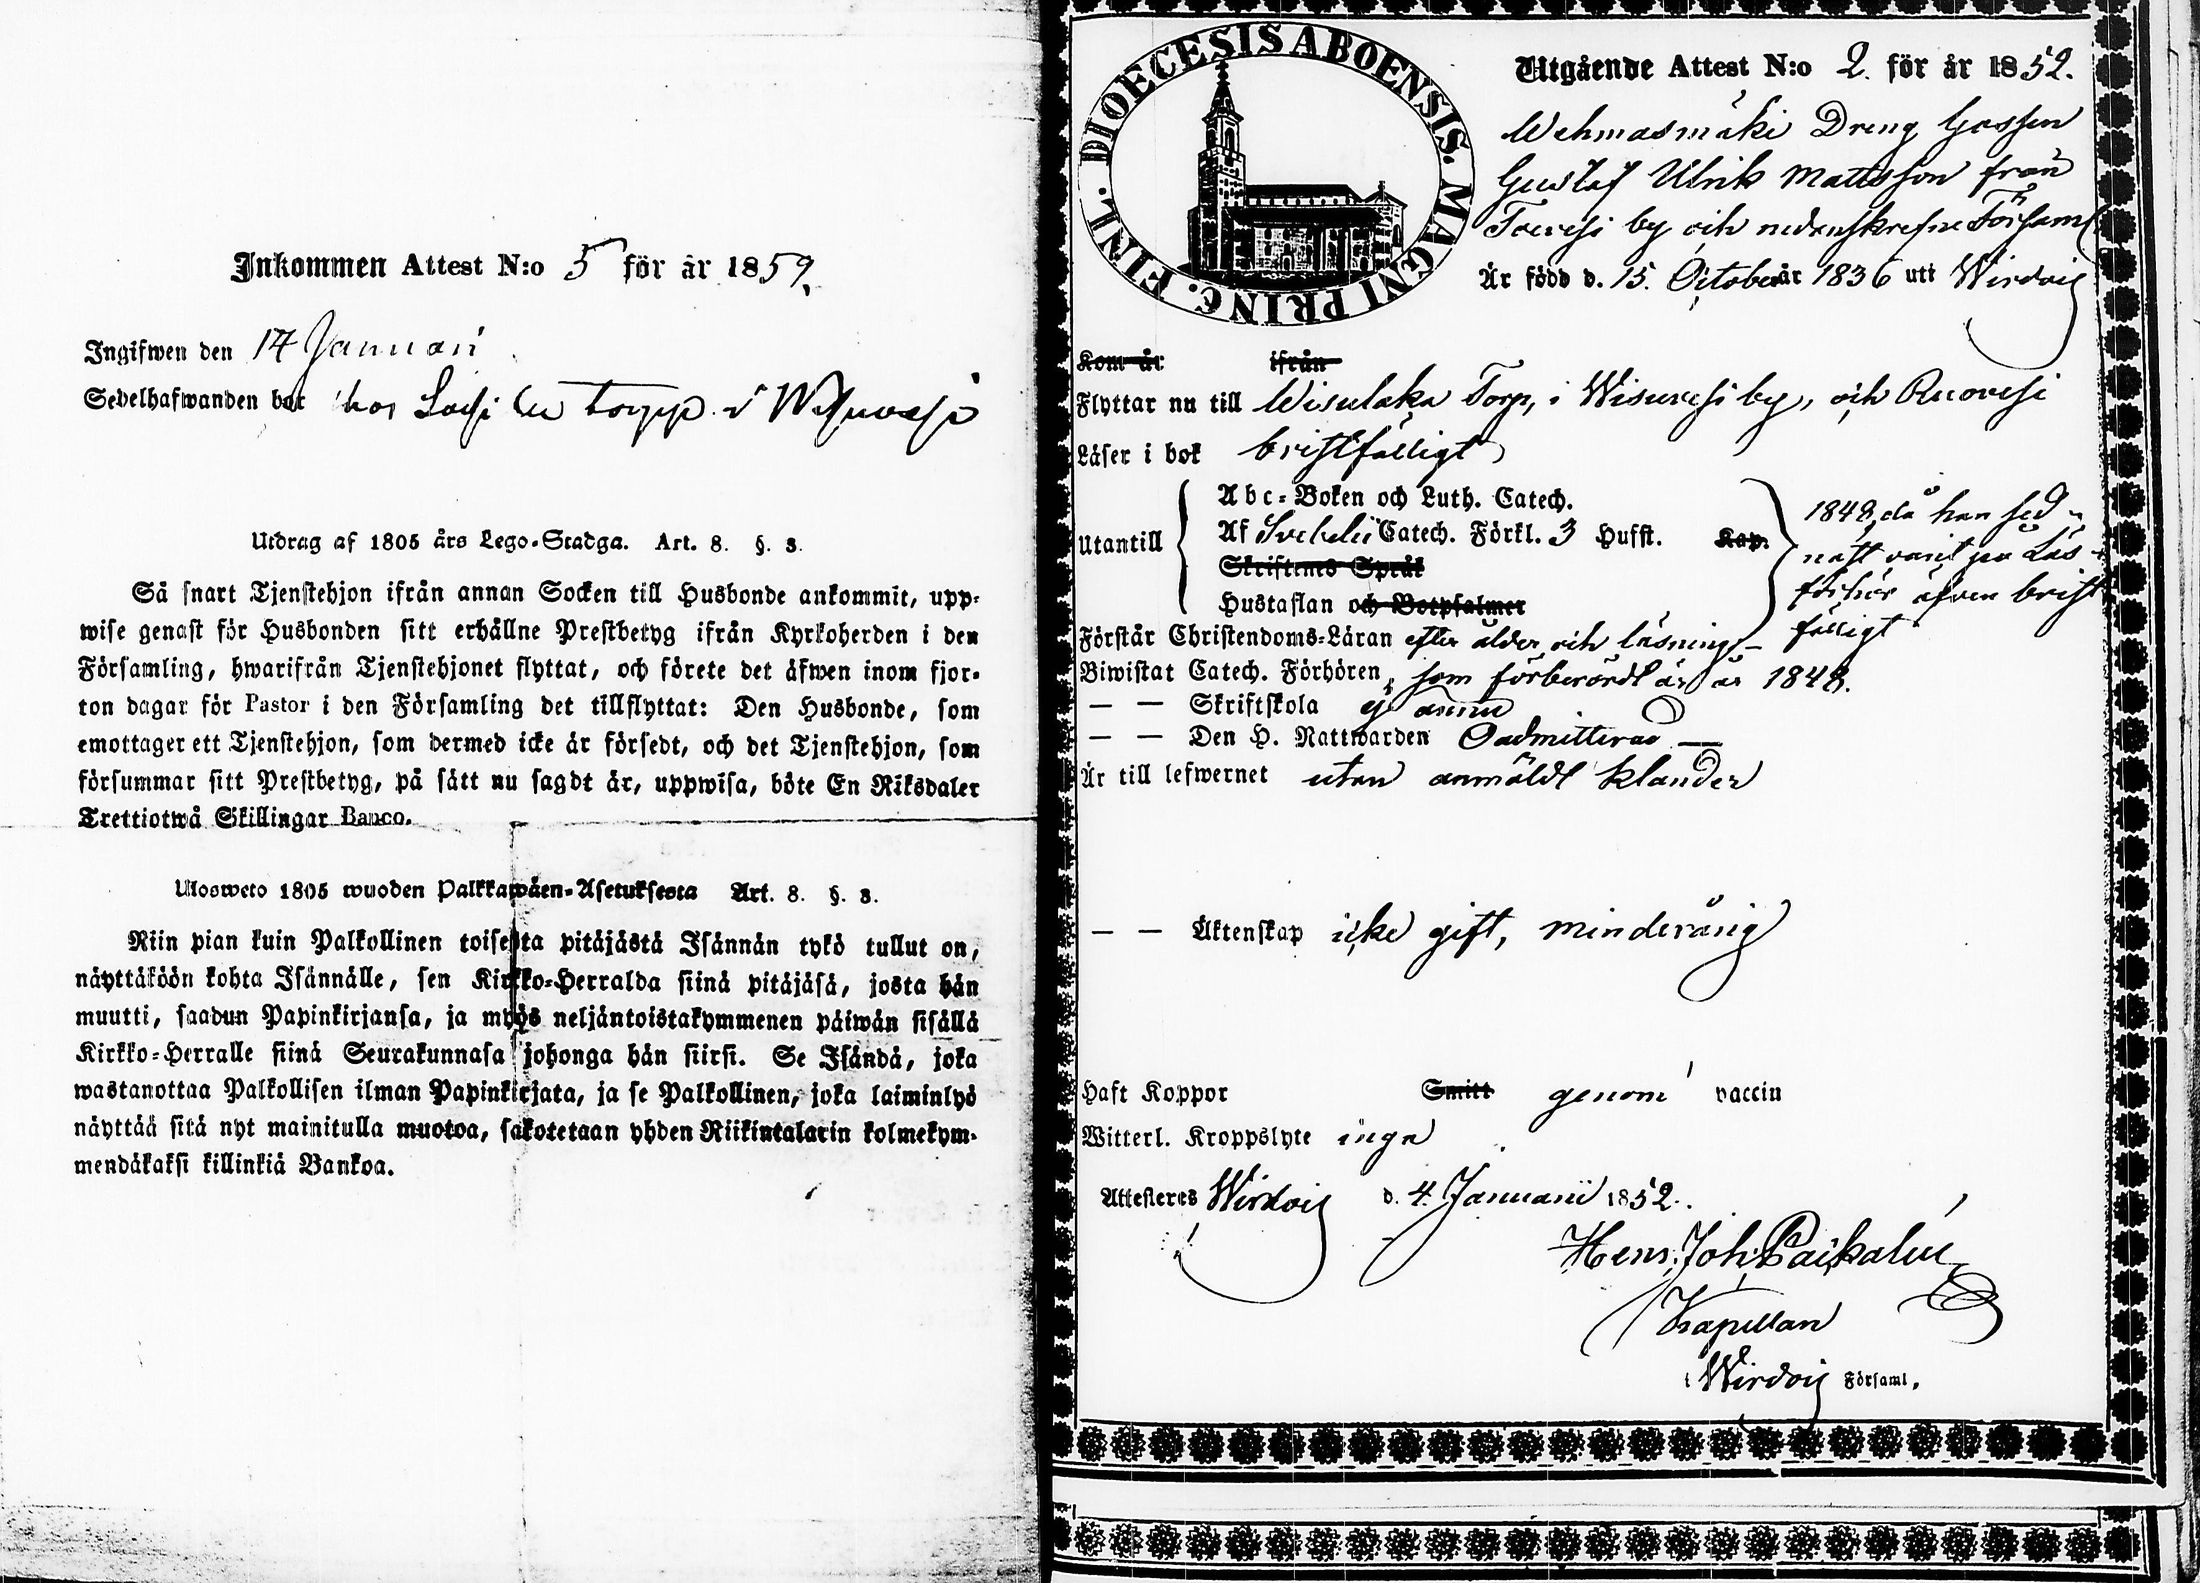 Inkommen Attest N:o 5 för år 1852.
Ingifwen den 14 Januari
Sedelhafwanden bor hos torpp i
Utdrag af 1805 års Lego-Stadga. Art. 8. §. 3.
Så snart Tjenstehjon ifrån annan Socken till Husbonde ankommit, upp-
wise genast för Husbonden sitt erhållne Prestbetyg ifrån Kyrkoherden i den
Församling, hwarifrån Tjenstehjonet flyttat, och förete det äfwen inom fjor-
ton dagar för Pastor i den Församling det tillflyttat: Den Husbonde, som
emottager ett Tjenstehjon, som dermed icke är försedt, och det Tjenstehjon, som
försummar sitt Prestbetyg, på sätt nu sagdt är, uppwisa, böte En Riksdaler
Trettiotwå Skillingar Banco.
Ulosweto 1805 wuoden Palkkawäen-Asetuksesta Art. 8. §. 3.
Niin pian kuin Palkollinen toisesta pitäjästä Isännän tykö tullut on,
näyttäköön kohta Isännälle, sen Kirkko-Herralda siinä pitäjäsä, josta hän
muutti, saadun Papinkirjansa, ja myös neljäntoistakymmenen päiwän sisällä
Kirkko-Herralle siinä Seurakunnasa johonga hän siirsi. Se Isändä, joka
wastanottaa Palkollisen ilman Papinkirjata, ja se Palkollinen, joka laiminlyö
näyttää sitä nyt mainitulla muotoa, sakotetaan yhden Riikintalarin kolmekym-
mendäkaksi killinkiä Bankoa.
DIOECESIS ABOENSIS. MAGNI PRINC. FINL.
Utgående Attest N:o 2. för år 1852.
Wehmasmäki Dreng Gossen
Gustaf Ulrik Mattsson från
Toivesi by och nedanskrefne Församl
Är född d. 15. October år 1836 uti Wirdois
Kom år ifrån
Flyttar nu till Wisulaka Torp, i Wisuvesi by, och Ruovesi
Läser i bok bristfälligt
Utantill
Abc-Boken och Luth. Catech.
Af Svebelii Catech. Förkl. 3 Hufst. Kap.
Skriftenes Språk
Hustaflan och Botpsalmer
1848, då han sed-
nast varit på Läs-
förhör äfven brist
fälligt
Förstår Christendoms-Läran efter ålder och läsning
Biwistat Catech. Förhören, som förberördt är år 1848.
— — Skriftskola ej ännu
— — Den H. Nattwarden Oadmitterad —
Är till lefwernet utan anmäldt klander
— — Äktenskap icke gift, minderårig
Haft Koppor Smitt genom vaccin
Witterl. Kroppslyte inga
Attesteres Wirdois d. 4. Januarii 1852.
Henr. Joh.
Kapellan
i Wirdois Församl.